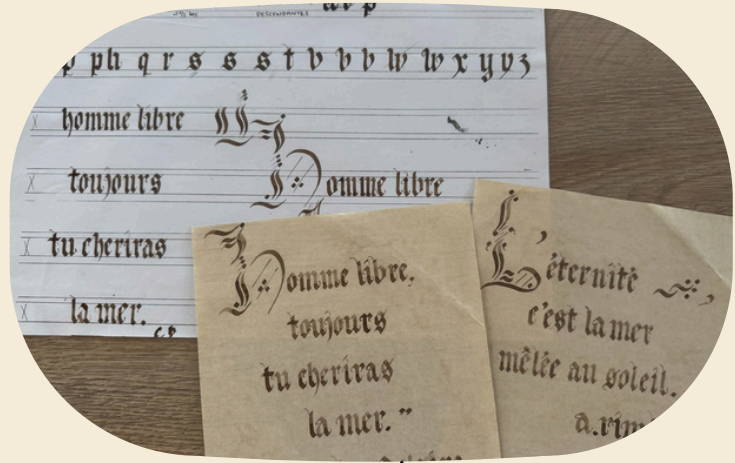 DESCENDANTES
p ph q r s s s t v v v w w x y y z
homme libre
Homme libre
toujours
tu cheriras
la mer.
Homme libre,
toujours
tu cheriras
la mer."
L'éternité
c'est la mer
mêlée au soleil.